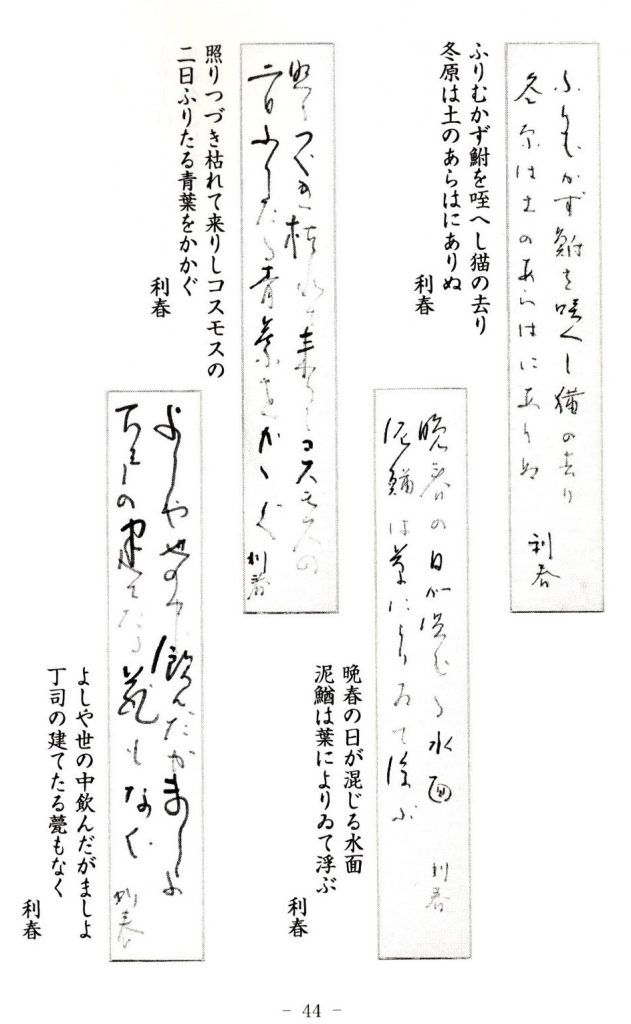 ふりむかず鮒を咥へし猫の去り
冬原は土のあらはにありぬ
利春
ふりむかず鮒を咥へし猫の去り
冬原は土のあらはにありぬ
利春
照りつづき枯れて来りしコスモスの
二日ふりたる青葉をかかぐ
利春
照りつづき枯れて来りしコスモスの
二日ふりたる青葉をかかぐ
利春
晩春の日が混じる水面
泥鰌は葉によりゐて浮ぶ
利春
晩春の日が混じる水面
泥鰌は葉によりゐて浮ぶ
利春
よしや世の中飲んだがましよ
丁司の建てたる甍もなく
利春
よしや世の中飲んだがましよ
丁司の建てたる甍もなく
利春
- 44 -